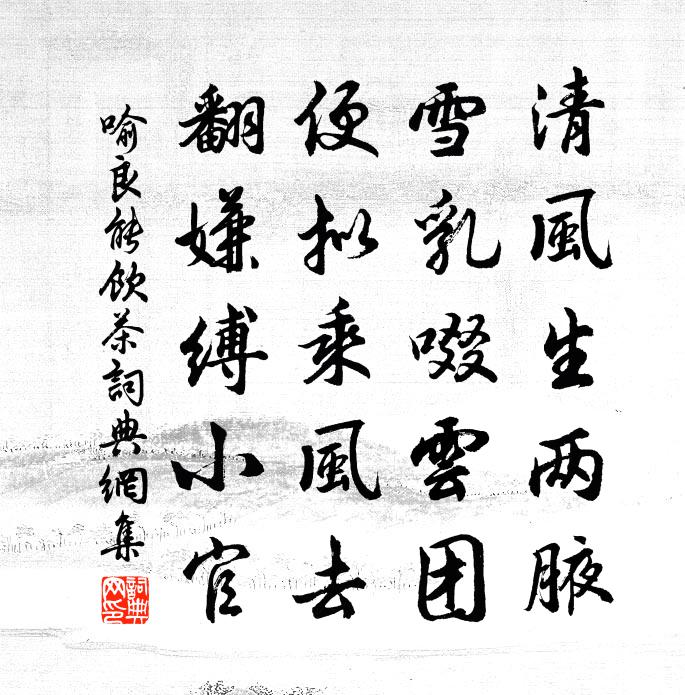 清風生两腋
雪乳啜雲团
便拟乘風去
翻嫌縛小官
喻良能飲茶詞典網集
詞典網印